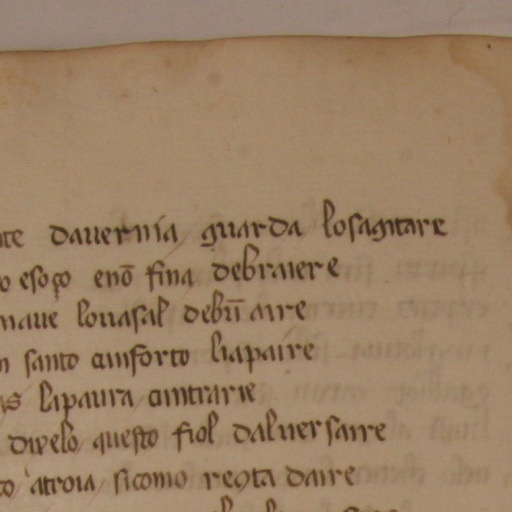 te dauernia guarda losagitare
o esoço enõ fina debraiere
naue louasal debũ aire
n santo cunforto liapaire
as lapaura cuntrarie
dixelo questo fiol daluersaire
to atroia sicomo reçta daire